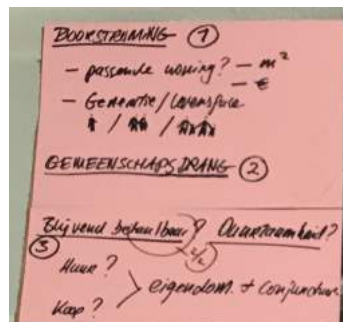 DOORSTROMING ①
- passende woning? - m²
- €
- Generatie/Levensfase
/ /
GEMEENSCHAPSDRANG ②
Blijvend betaalbaar? Duurzaamheid?
③
Huur?
Koop?
eigendom. + Conjunctuur